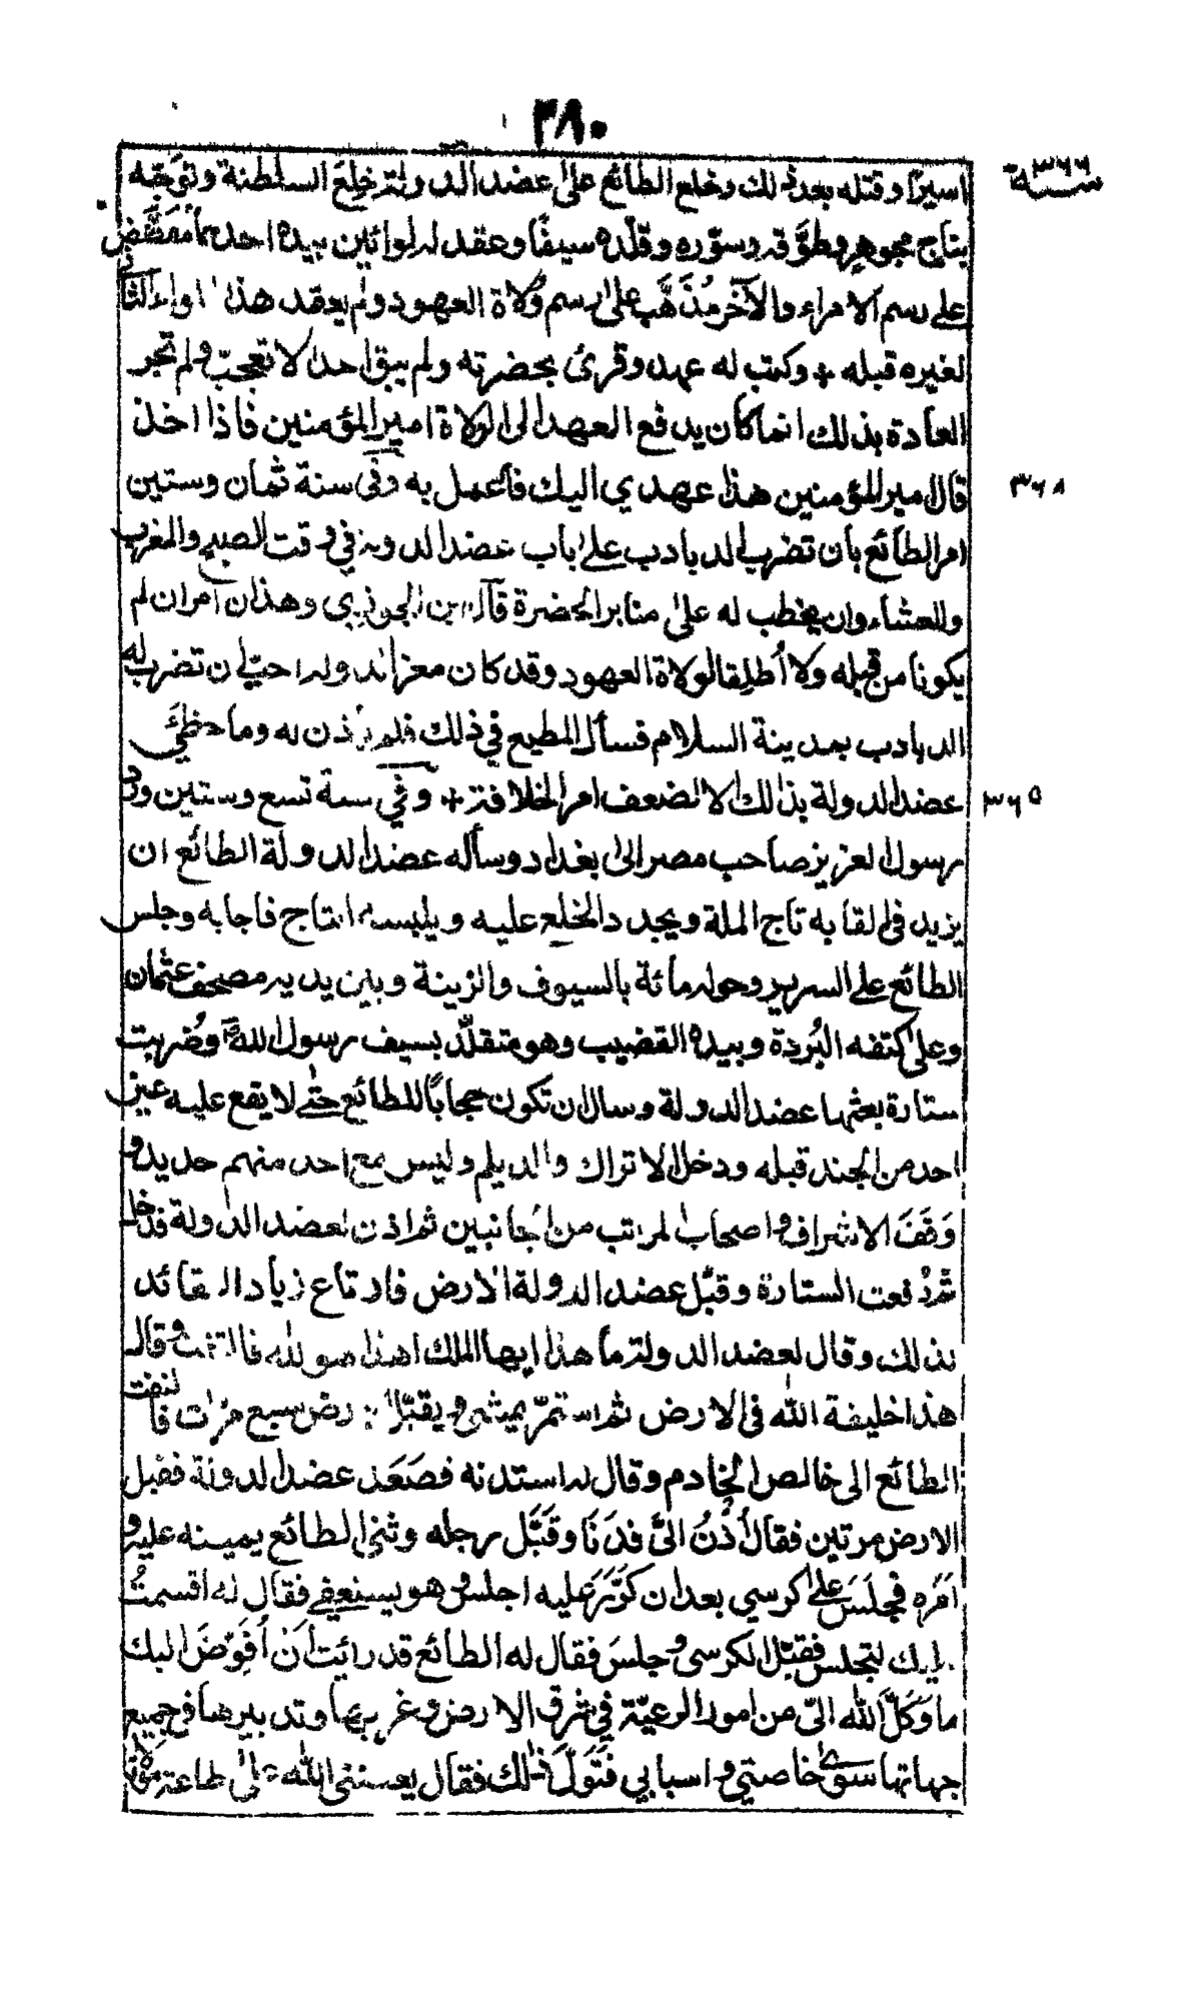 ٣٨٠
سنة ٣٦٦
اسيرًا وقتله بعد ذلك وخلع الطائع على عضد الدولة خلع السلطنة وتوجه
بتاج مجوهر وطوّقه وسوّره وقلّده سيفًا وعقد له لوائين بيده احدهما مفضّض
على رسم الامراء والآخر مذهّب على رسم ولاة العهود ولم يعقد هذا اللواء الثاني
لغيره قبله + وكتب له عهد وقرئ بحضرته ولم يبق احد الا تعجّب ولم تجر
العادة بذلك انما كان يدفع العهد الى الولاة امير المؤمنين فاذا اخذ
قال امير المؤمنين هذا عهدي اليك فاعمل به وفي سنة ثمان وستين
٣٦٨
امر الطائع بأن تضرب الدبادب على باب عضد الدولة في وقت الصبح والمغرب
والعشاء وان يخطب له على منابر الحضرة قال ابن الجوزي وهذان امران لم
يكونا من قبله ولا أُطلقا لولاة العهود وقد كان معز الدولة احبّ ان تضرب له
الدبادب بمدينة السلام فسأل المطيع في ذلك فلم يأذن له وما حظيَ
عضد الدولة بذلك الا لضعف امر الخلافة + وفي سنة تسع وستين ورد
٣٦٩
رسول العزيز صاحب مصر الى بغداد وسأله عضد الدولة الطائع ان
يزيد في القابه تاج الملة ويجدد الخلع عليه ويلبسه التاج فاجابه وجلس
الطائع على السرير وحوله مائة بالسيوف والزينة وبين يديه مصحف عثمان
وعلى كتفه البُردة وبيده القضيب وهو متقلّد بسيف رسول اللهؐ وضُربت
ستارة بعثها عضد الدولة وسال ان تكون حجابًا للطائع حتى لا يقع عليه عين
احد من الجند قبله ودخل الاتراك والديلم وليس مع احد منهم حديد و
وَقَفَ الاشراف واصحاب المراتب من الجانبين ثم اذن لعضد الدولة فدخل
ثم رُفعت الستارة وقبّل عضد الدولة الارض فارتاع زياد القائد
بذلك وقال لعضد الدولة ما هذا ايها الملك اهذا هو الله فالتفت وقال
هذا خليفة الله في الارض ثم استمرّ يمشي ويقبّل الارض سبع مرّات فالتفت
الطائع الى خالص الخادم وقال له استدنه فصَعَد عضد الدولة فقبل
الارض مرتين فقال أُدْنُ اليَّ فدَنَا وقَبَّل رجله وثنى الطائع يمينه عليه و
اَمَره فجلَسَ على كرسي بعد ان كَرَّرَ عليه اجلس وهو يستعفي فقال له اقسمتُ
عليك لتجلس فقبّل الكرسي وجلسَ فقال له الطائع قد رأيت أن أُفَوِّضَ اليك
ما وَكَلَ الله اليّ من امور الرعيّة في شرق الارض وغربها وتدبيرها في جميع
جهاتها سوى خاصتي واسبابي فتَوَلَّ ذلك فقال يعينني الله على طاعة مولانا